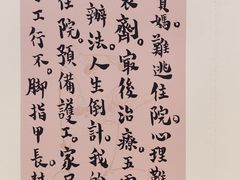 媽。難逃住院心理難
劑。最後治療。五
辦法。人生倒計。我的
住院。預備護工。家
工行不。脚指甲長。